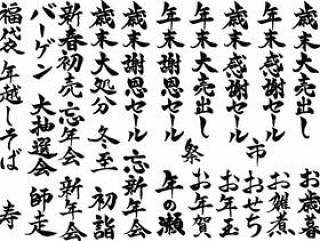 歳末感謝セール
年末感謝セール
歳末大売出し
年末大売出し
歳末謝恩セール
年末謝恩セール
歳末大処分
新春初売
バーゲン
福袋
市
祭
忘年会
冬至
大抽選会
年越しそば
お歳暮
お雑煮
おせち
お年玉
お年賀
年の瀬
忘新年会
初詣
新年会
師走
寿